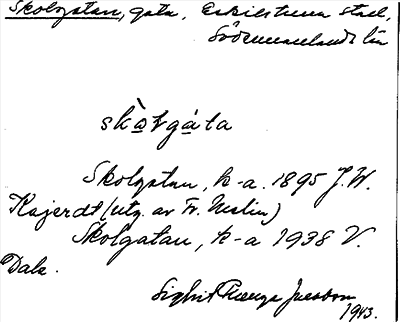 Skolgatan, gata, Eskilstuna stad,
Södermanlands län
skòtgáta
Skolgatan, k-a. 1895 J.W.
Kajerdt (utg. av Fr. Malin)
Skolgatan, k-a 1938 V.
Dala.
Sigbrit Jacobson
1943.